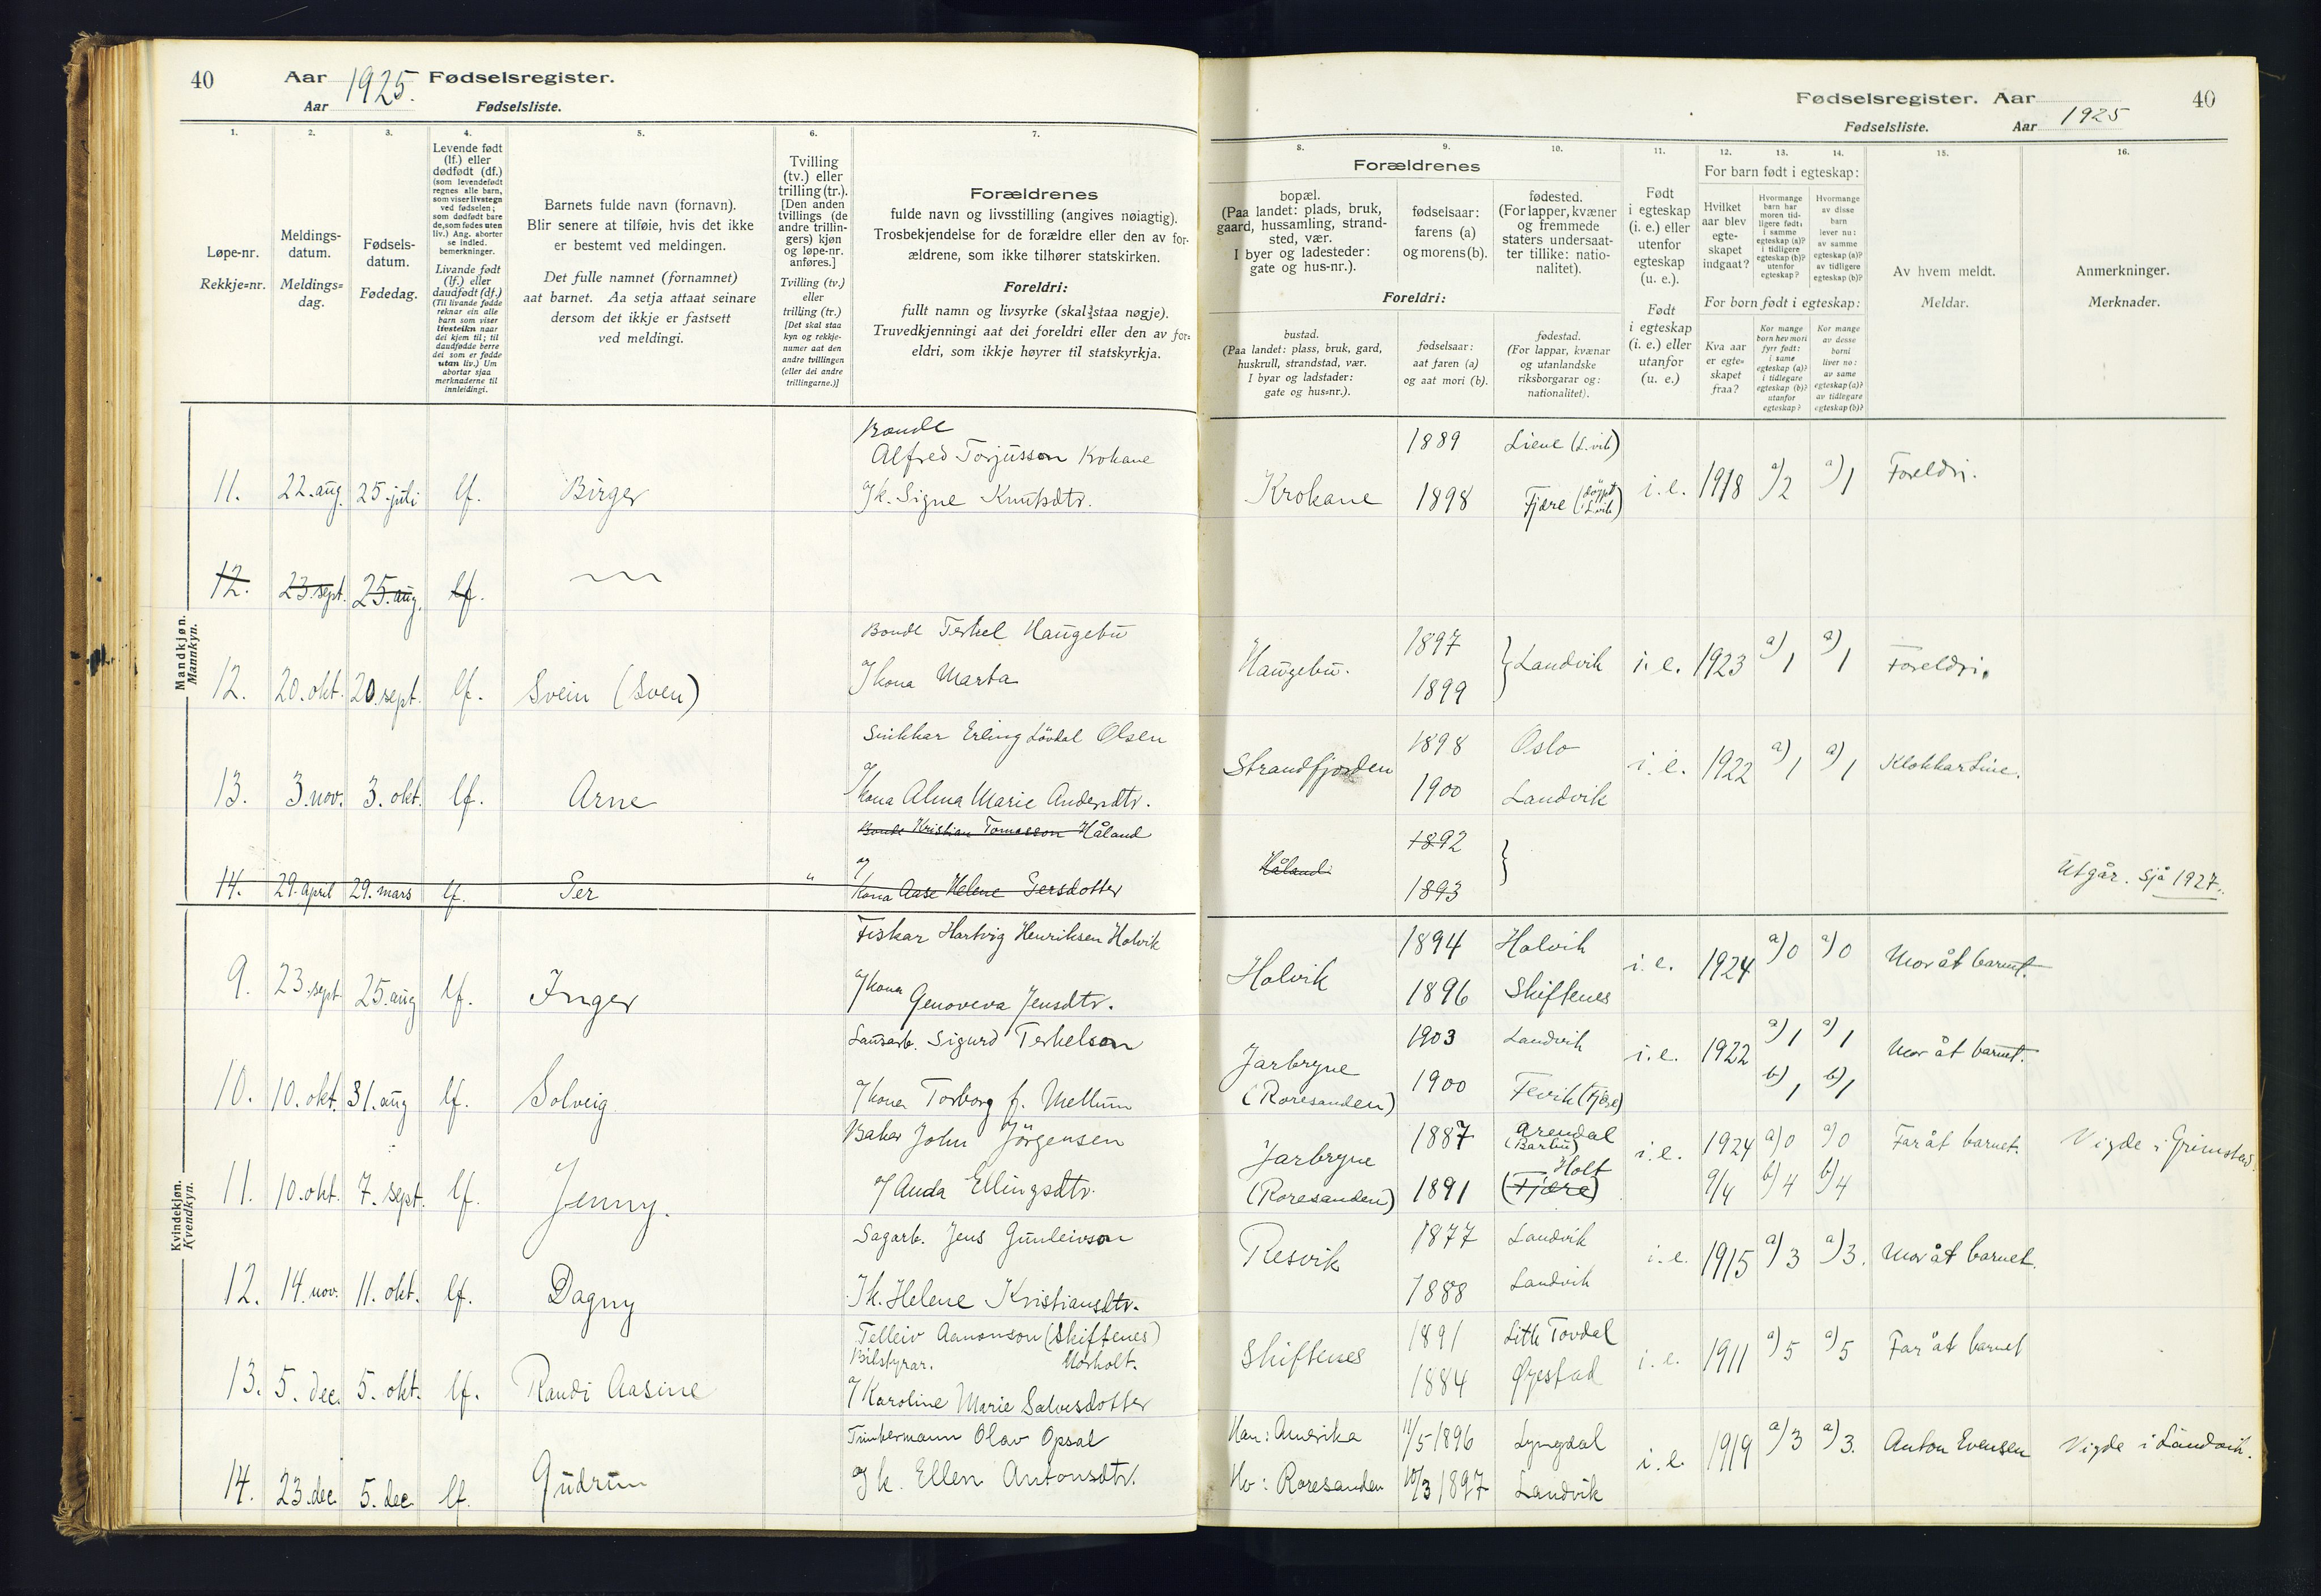 40 Aar 1925. Fødselsregister.
Aar Fødselsliste.
1. 2. 3. 4. 5. 6. 7.
Løpe-nr.
Rekkje=nr.
Meldings-
datum.
Meldings=
dag.
Fødsels-
datum.
Fødedag.
Levende født
(lf.) eller
dødfødt (df.)
(som levendefødt
regnes alle barn,
som viser livstegn
ved fødselen;
som dødfødt bare
de, som fødes uten
liv.) Ang. aborter
se indled.
bemerkninger.
Livande født
(lf.) eller
daudfødt (df.)
(Til livande fødde
reknar ein alle
barn som viser
livsteikn naar
dei kjem til; til
daudfødde berre
dei som er fødde
utan liv.) Um
abortar sjaa
merknaderne til
innleidingi.
Barnets fulde navn (fornavn).
Blir senere at tilføie, hvis det ikke
er bestemt ved meldingen.
Det fulle namnet (fornamnet)
aat barnet. Aa setja attaat seinare
dersom det ikkje er fastsett
ved meldingi.
Tvilling
(tv.) eller
trilling (tr.).
[Den anden
tvillings (de
andre trillin-
gers) kjøn
og løpe-nr.
anføres.]
Tvilling (tv.)
eller
trilling (tr.)
[Det skal staa
kyn og rekkje-
numer aat den
andre tvillingen
(eller dei andre
trillingarne.)]
Forældrenes
fulde navn og livsstilling (angives nøiagtig).
Trosbekjendelse for de forældre eller den av for-
ældrene, som ikke tilhører statskirken.
Foreldri:
fullt namn og livsyrke (skal staa nøgje).
Truvedkjenningi aat dei foreldri eller den av for=
eldri, som ikkje høyrer til statskyrkja.
Mandkjøn.
Mannkyn.
Bonde
Alfred Torjusson Krokane
11. 22. aug. 25. juli lf. Birger
og k. Signe Knutsdtr.
12. 23. sept. 25. aug. lf.
Bonde Terkel Haugebu
12. 20. okt. 20. sept. lf. Svein (Sven) og kona Marta
Snikkar Erling Lövdal Olsen
13. 3. nov. 3. okt. lf. Arne og kona Alma Marie Andersdtr.
Bonde Kristian Tomasson Håland
14. 29. april 29. mars lf. Per " og kona Aase Helene Persdotter
Kvindekjøn.
Kvendkyn.
Fiskar Hartvig Henriksen Holvik
9. 23. sept 25. aug lf. Inger og kona Genoveva Jensdtr.
Lausarb. Sigurd Terkelson
10. 10. okt. 31. aug lf. Solveig og kona Torborg f. Mellum
Baker John Jörgensen
11. 10. okt. 7. sept. lf. Jenny. og Anda Ellingsdtr.
Sagarb. Jens Gunleivson
12. 14. nov. 11. okt. lf. Dagny og k. Helene Kristiansdtr.
Telleiv Aamonson (Skiftenes)
Bilstyrar.
13. 5. dec. 5. okt. lf. Randi Aasine og Karoline Marie Salvesdotter
Timbermann Olav Opsal
14. 23. dec. 5. dec lf. Gudrun og k. Ellen Antonsdtr.
Fødselsregister. Aar 40
Fødselsliste. Aar 1925
8. 9. 10. 11. 12. 13. 14. 15. 16.
Forældrenes
bopæl.
(Paa landet: plads, bruk,
gaard, hussamling, strand-
sted, vær.
I byer og ladesteder:
gate og hus-nr.).
fødselsaar:
farens (a)
og morens (b).
fødested.
(For lapper, kvæner
og fremmede
staters undersaat-
ter tillike: natio-
nalitet).
Foreldri:
bustad.
(Paa landet: plass, bruk, gard,
huskrull, strandstad, vær.
I byar og ladstader:
gate og hus=nr.).
fødselsaar:
aat faren (a)
og aat mori (b).
fødestad.
(For lappar, kvænar
og utanlandske
riksborgarar og:
nationalitet).
Født
i egteskap
(i. e.) eller
utenfor
egteskap
(u. e.).
Født
i egteskap
(i. e.) eller
utanfor
(u. e.)
For barn født i egteskap:
Hvilket
aar blev
egte-
skapet
indgaat?
Hvormange
barn har
moren tid-
ligere født:
i samme
egteskap (a)?
i tidligere
egteskap (b)?
utenfor
egteskap?
Hvormange
av disse
barn
lever nu:
av samme
egteskap (a)?
av tidligere
egteskap (b)?
For born født i egteskap:
Kva aar
er egte=
skapet
fraa?
Kor mange
born hev mori
fyrr født:
i same
egteskap (a)?
i tidlegare
egteskap (b)?
utanfor
egteskap?
Kor mange
av desse
borni
liver no:
av same
egteskap (a)?
av tidlegare
egteskap (b)?
Av hvem meldt.
Meldar.
Anmerkninger.
Merknader.
1889 Liene (L.vik)
Krokane 1898 Fjære (döypt L.vik) i. e. 1918 a) 2 a) 1 Foreldri.
1897
Haugebu. } Landvik i. e. 1923 a) 1 a) 1 Foreldri.
1899
1898 Oslo
Strandfjorden i. e. 1922 a) 1 a) 1 Klokkar Line.
1900 Landvik
1892
Håland. }
1893
Utgår. Sjå 1927.
1894 Holvik
Holvik i. e. 1924 a) 0 a) 0 Mor åt barnet.
1896 Skiftenes
1903 Landvik
Jarbryne i. e. 1922 a) 1 a) 1 Mor åt barnet.
(Roresanden) 1900 Fevik (Fjære) b) 1 b) 1
1887 Arendal (Barbu)
Jarbryne i. e. 1924 a) 0 a) 0 Far åt barnet. Vigde i Grimstad.
(Roresanden) 1891 (Fjære) Holt 9/4 b) 4 b) 4
1877 Landvik
Resvik i. e. 1915 a) 3 a) 3. Mor åt barnet.
1888 Landvik
1891 Tovdal
Skiftenes i. e. 1911 a) 5 a) 5 Far åt barnet
1884 Øyestad
Han: Amerika 11/5 1896 Lyngdal
i. e. 1919 a) 3 a) 3. Anton Evensen Vigde i Landvik.
Ho: Roresanden 10/3 1897 Landvik